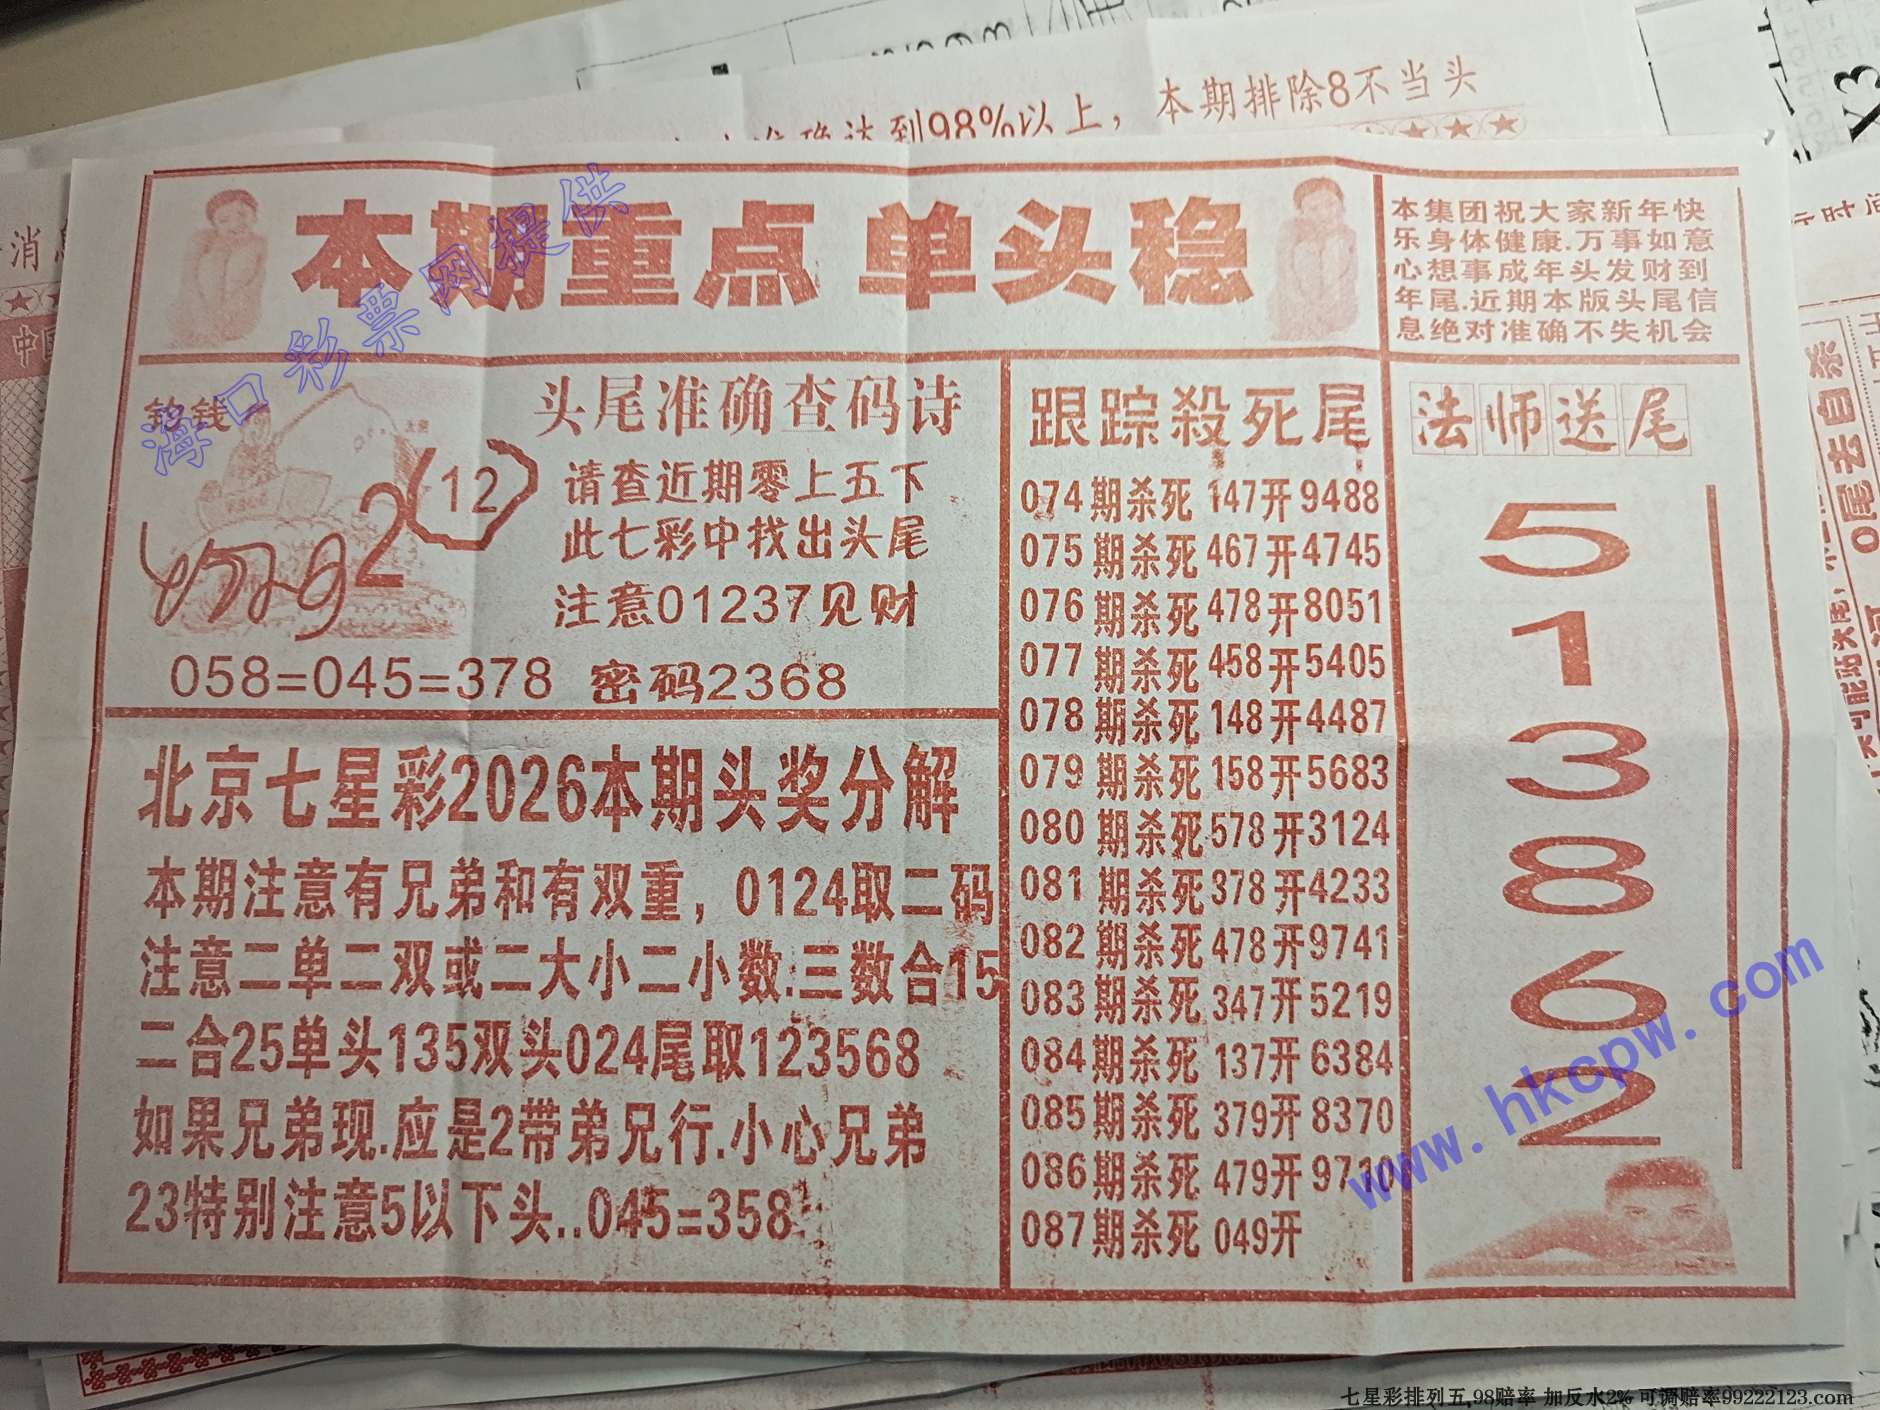 达到98%以上，本期排除8不当头
本期重点 单头稳
本集团祝大家新年快
乐身体健康.万事如意
心想事成年头发财到
年尾.近期本版头尾信
息绝对准确不失机会
海口彩票网提供
钓钱
2
(12)
头尾准确查码诗
请查近期零上五下
此七彩中找出头尾
注意01237见财
058=045=378 密码2368
北京七星彩2026本期头奖分解
本期注意有兄弟和有双重，0124取二码
注意二单二双或二大小二小数.三数合15
二合25单头135双头024尾取123568
如果兄弟现.应是2带弟兄行.小心兄弟
23特别注意5以下头..045=358
跟踪殺死尾
074期杀死 147开9488
075期杀死 467开4745
076期杀死 478开8051
077期杀死 458开5405
078期杀死 148开4487
079期杀死 158开5683
080期杀死 578开3124
081期杀死 378开4233
082期杀死 478开9741
083期杀死 347开5219
084期杀死 137开6384
085期杀死 379开8370
086期杀死 479开9710
087期杀死 049开
法师送尾
5
1
3
8
6
2
www.hkcpw.com
0尾去自杀
七星彩排列五,98赔率 加反水2% 可调赔率99222123.com